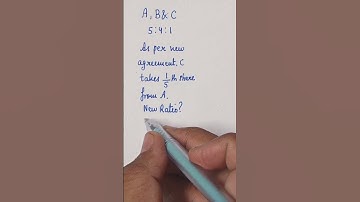 A, B & C
5:4:1
As per new
agreement, C
takes 1/5 th share
from A.
New Ratio?